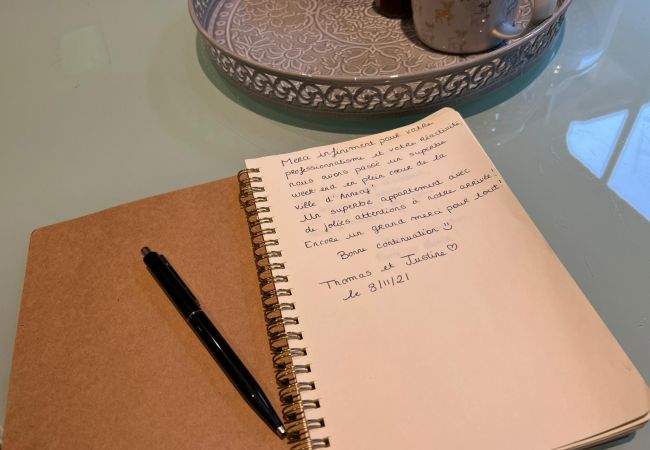 Merci infiniment pour votre
professionnalisme et votre réactivité
nous avons passé un superbe
week end en plein cœur de la
ville d'Annecy!
Un superbe appartement avec
de jolies attentions à notre arrivée!
Encore un grand merci pour tout!
Bonne continuation :)
Thomas et Justine ♡
le 8/11/21